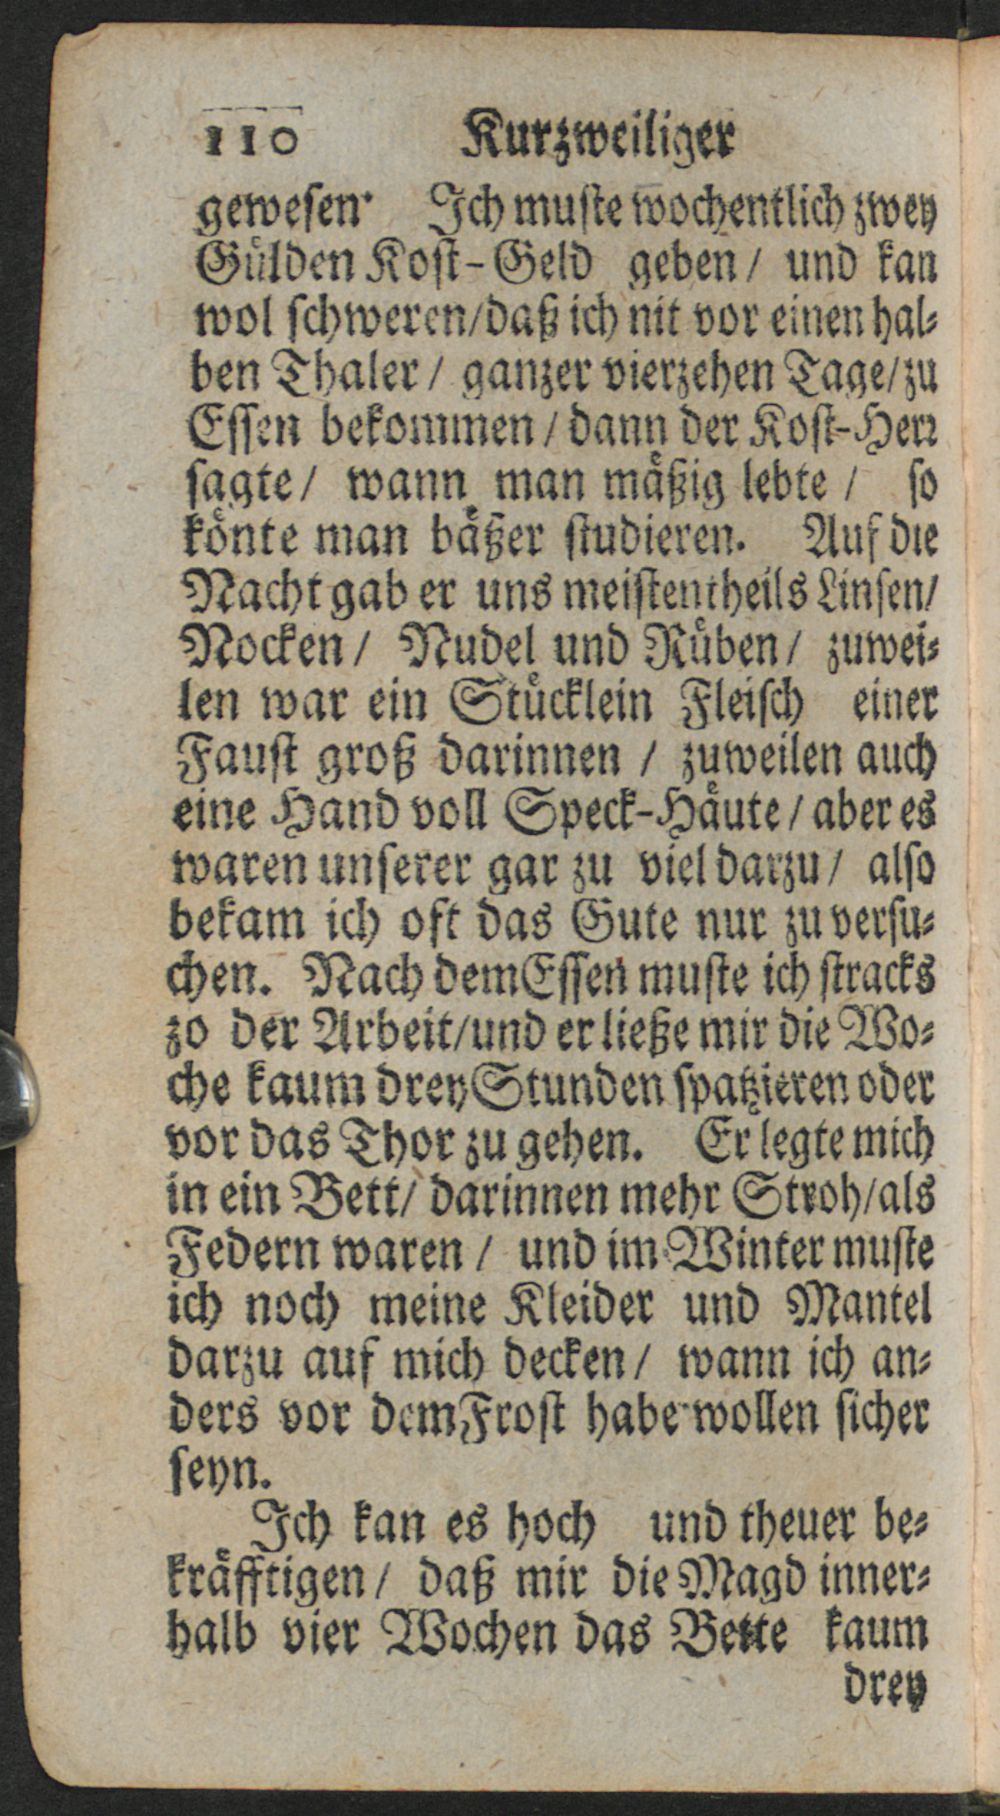 110 Kurzweiliger
gewesen. Ich muste wochentlich zwey
Gülden Kost-Geld geben / und kan
wol schweren/daß ich nit vor einen hal-
ben Thaler / ganzer vierzehen Tage/zu
Essen bekommen / dann der Kost-Herr
sagte / wann man mäßig lebte / so
könte man bäßer studieren. Auf die
Nacht gab er uns meistentheils Linsen/
Nocken / Nudel und Rüben / zuwei-
len war ein Stücklein Fleisch einer
Faust groß darinnen / zuweilen auch
eine Hand voll Speck-Häute / aber es
waren unserer gar zu viel darzu / also
bekam ich oft das Gute nur zu versu-
chen. Nach dem Essen muste ich stracks
zo der Arbeit/und er ließe mir die Wo-
che kaum drey Stunden spatzieren oder
vor das Thor zu gehen. Er legte mich
in ein Bett/ darinnen mehr Stroh/als
Federn waren / und im Winter muste
ich noch meine Kleider und Mantel
darzu auf mich decken / wann ich an-
ders vor dem Frost habe wollen sicher
seyn.
Ich kan es hoch und theuer be-
kräfftigen / daß mir die Magd inner-
halb vier Wochen das Bette kaum
drey